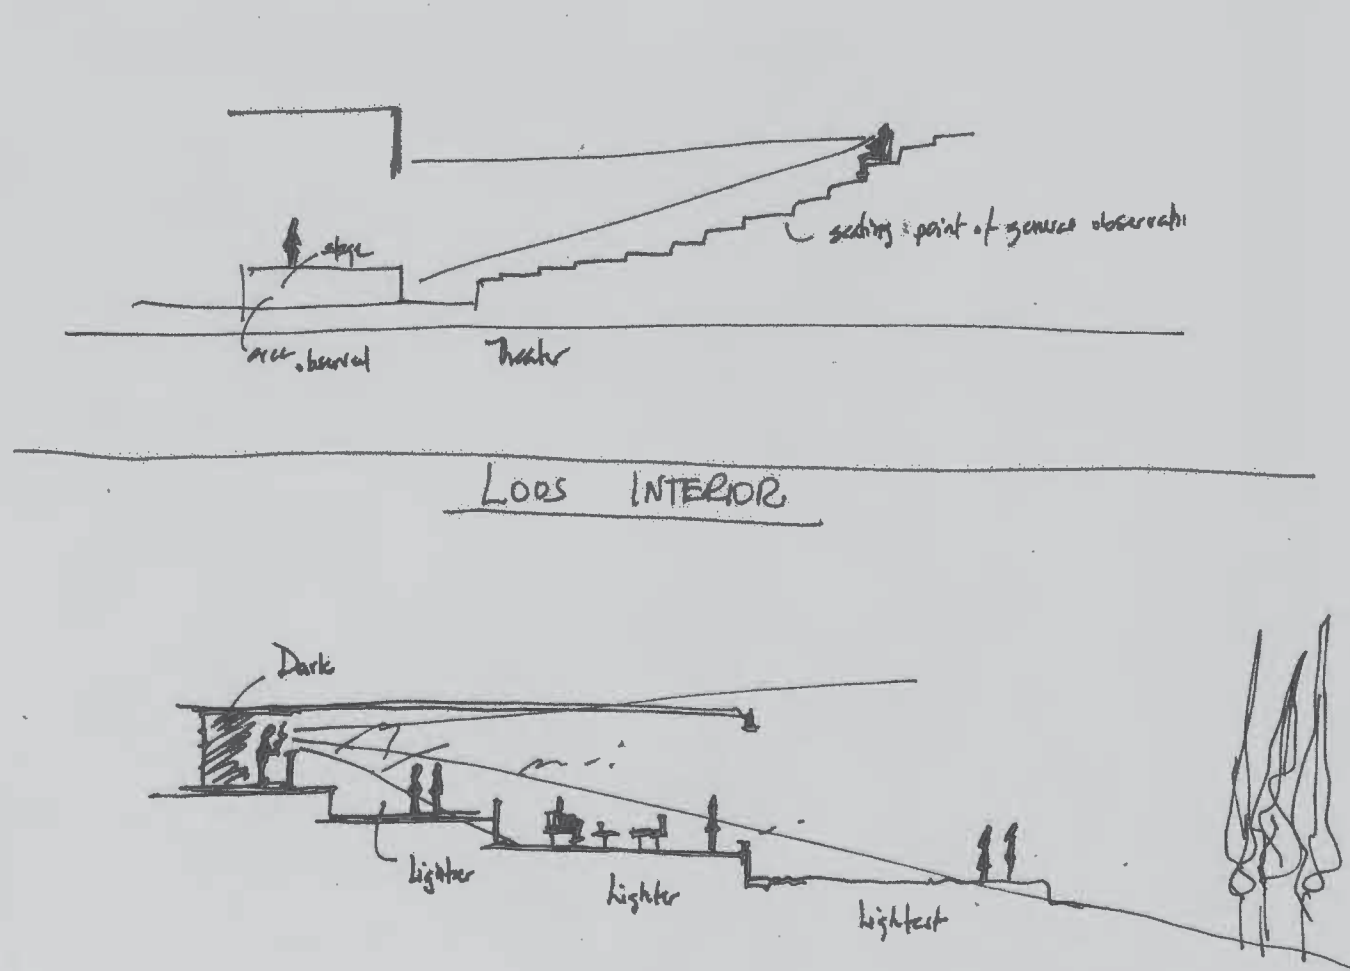 stage
seating : point of general observati
area observed
Theater
LOOS INTERIOR
Dark
Lighter
Lighter
Lightest